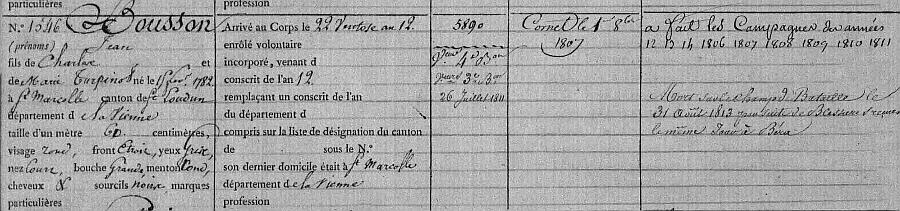 particulières
profession
N.º 1546 Housson
(prénoms) Jean
fils de Charles et
de Marie Turpinot né le 15 1782
à St Marcolle canton de Loudun
département d e la Vienne
taille d'un mètre 60 centimètres,
visage rond, front étroit, yeux gris,
nez court, bouche Grande, menton rond,
cheveux & sourcils noirs, marques
particulières
Arrivé au Corps le 22 Ventose an 12.
enrôlé volontaire
incorporé, venant d
conscrit de l'an 12
remplaçant un conscrit de l'an
du département d
compris sur la liste de désignation du canton
de sous le N.º
son dernier domicile était à St Marcolle
département d e la Vienne
profession
5890
4e Bon
3e Bon
26 Juillet 1811
Cornet le 1er 8bre
1807
a fait les Campagnes des années
12 13 14 1806 1807 1808 1809 1810 1811
Mort sur le champ d Bataille le
31 Août 1813 par suite de Blessures reçues
le même Jour à Bera